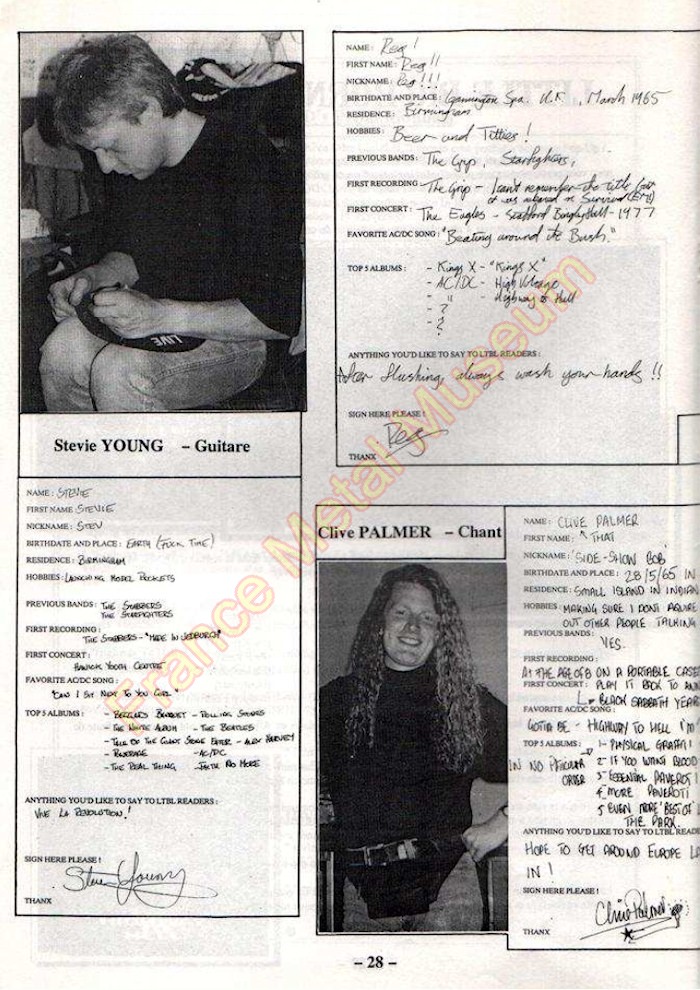 NAME : Reg !
FIRST NAME : Reg !!
NICKNAME : Reg !!!
BIRTHDATE AND PLACE : Leamington Spa. U.K , March 1965
RESIDENCE : Birmingham
HOBBIES : Beer and Titties !
PREVIOUS BANDS : The Grip, Starfighters,
FIRST RECORDING The Grip - I can't remember the title but
it was released on Survival
FIRST CONCERT : The Eagles - Stafford Bingley Hall - 1977
FAVORITE AC/DC SONG : "Beating around the Bush."
TOP 5 ALBUMS : - Kings X - "Kings X"
- AC/DC - High Voltage
- " - Highway to Hell
- ?
- ?
ANYTHING YOU'D LIKE TO SAY TO LTBL READERS :
After flushing, always wash your hands !!
SIGN HERE PLEASE !
Reg
THANX
LIVE
Stevie YOUNG – Guitare
NAME : STEVIE
FIRST NAME STEVIE
NICKNAME : STEV
BIRTHDATE AND PLACE : EARTH (FUCK TIME)
RESIDENCE : BIRMINGHAM
HOBBIES : LAUNCHING MODEL ROCKETS
PREVIOUS BANDS : THE STABBERS
THE STARFIGHTERS
FIRST RECORDING :
THE STABBERS - "MADE IN JEDBURGH"
FIRST CONCERT :
HAWICK YOUTH CENTRE
FAVORITE AC/DC SONG :
"CAN I SIT NEXT TO YOU GIRL"
TOP 5 ALBUMS : - BEGGARS BANQUET - ROLLING STONES
- THE WHITE ALBUM - THE BEATLES
- TALE OF THE GIANT STONE EATER - ALEX HARVEY
- POWERAGE - AC/DC
- THE REAL THING - FAITH NO MORE
ANYTHING YOU'D LIKE TO SAY TO LTBL READERS :
VIVE LA REVOLUTION !
SIGN HERE PLEASE !
Steve Young
THANX
Clive PALMER – Chant
NAME : CLIVE PALMER
FIRST NAME : THAT
NICKNAME : 'SIDE-SHOW BOB'
BIRTHDATE AND PLACE : 28/5/65 IN
RESIDENCE : SMALL ISLAND IN INDIAN
HOBBIES : MAKING SURE I DONT
OUT OTHER PEOPLE TALKING
PREVIOUS BANDS :
YES.
FIRST RECORDING :
AT THE AGE OF 8 ON A PORTABLE CASE
FIRST CONCERT : PLAY IT BACK TO
BLACK SABBATH YEAR
FAVORITE AC/DC SONG :
GOTTA BE - HIGHWAY TO HELL 'I'M
TOP 5 ALBUMS : 1- PHYSICAL GRAFFITI
IN NO PARTICULAR 2- IF YOU WANT BLOOD
ORDER 3- ESSENTIAL PAVEROTI
4- MORE PAVEROTI
5 EVEN MORE 'BEST OF'
THE PARK.
ANYTHING YOU'D LIKE TO SAY TO LTBL READE
HOPE TO GET AROUND EUROPE
IN !
SIGN HERE PLEASE !
Clive Palmer
THANX
– 28 –
France Metal Museum